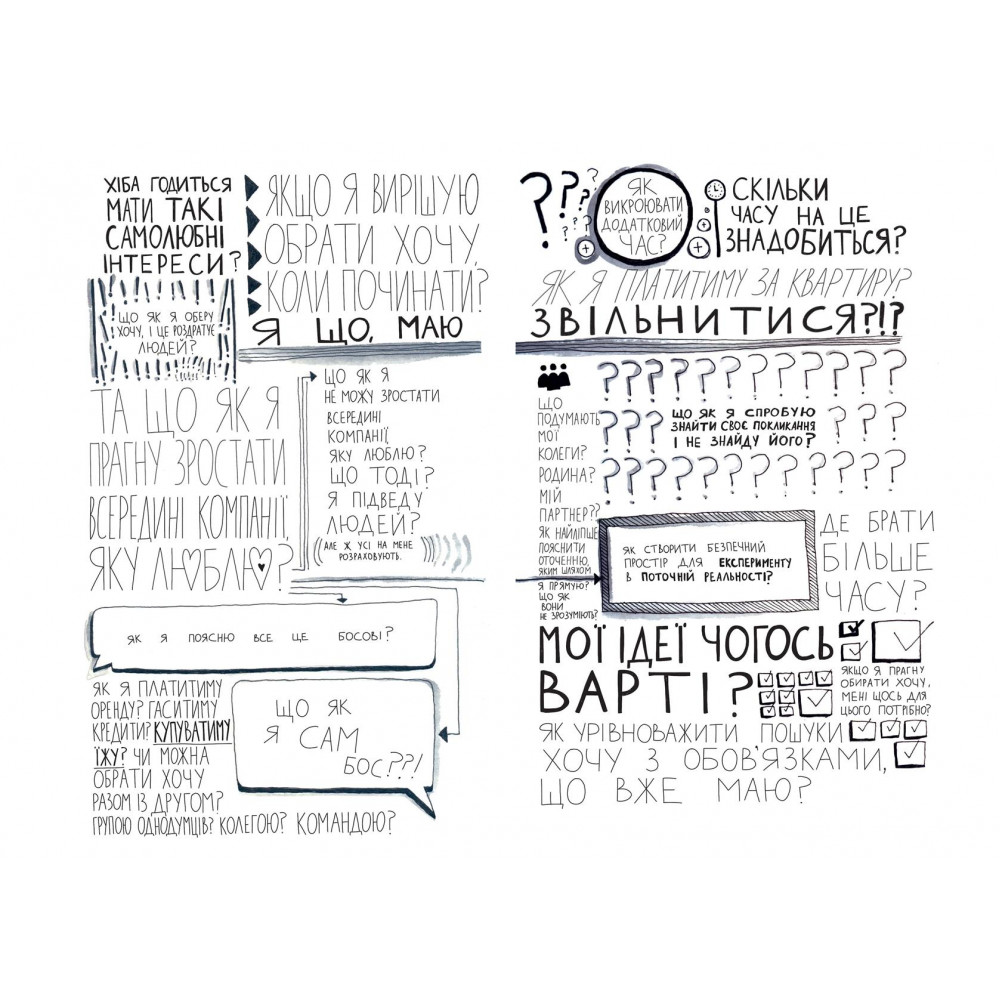 ХІБА ГОДИТЬСЯ
МАТИ ТАКІ
САМОЛЮБНІ
ІНТЕРЕСИ?
ЯКЩО Я ВИРІШУЮ
ОБРАТИ ХОЧУ,
КОЛИ ПОЧИНАТИ?
Я ЩО, МАЮ
ЩО ЯК Я ОБЕРУ
ХОЧУ, І ЦЕ РОЗДРАТУЄ
ЛЮДЕЙ?
ТА ЩО ЯК Я
ПРАГНУ ЗРОСТАТИ
ВСЕРЕДИНІ КОМПАНІЇ,
ЯКУ ЛЮБЛЮ?
ЩО ЯК Я
НЕ МОЖУ ЗРОСТАТИ
ВСЕРЕДИНІ
КОМПАНІЇ,
ЯКУ ЛЮБЛЮ?
ЩО ТОДІ?
Я ПІДВЕДУ
ЛЮДЕЙ?
АЛЕ Ж УСІ НА МЕНЕ
РОЗРАХОВУЮТЬ.
ЯК Я ПОЯСНЮ ВСЕ ЦЕ БОСОВІ?
ЯК Я ПЛАТИТИМУ
ОРЕНДУ? ГАСИТИМУ
КРЕДИТИ? КУПУВАТИМУ
ЇЖУ? ЧИ МОЖНА
ОБРАТИ ХОЧУ
РАЗОМ ІЗ ДРУГОМ?
ГРУПОЮ ОДНОДУМЦІВ? КОЛЕГОЮ? КОМАНДОЮ?
ЩО ЯК
Я САМ
БОС??!
? ? ? ? ? ? ? ?
ЯК
ВИКРОЮВАТИ
ДОДАТКОВИЙ
ЧАС?
СКІЛЬКИ
ЧАСУ НА ЦЕ
ЗНАДОБИТЬСЯ?
ЯК Я ПЛАТИТИМУ ЗА КВАРТИРУ?
ЗВІЛЬНИТИСЯ?!?
? ? ? ? ? ? ? ? ? ? ? ? ?
? ? ? ЩО ЯК Я СПРОБУЮ ? ? ?
ЗНАЙТИ СВОЄ ПОКЛИКАННЯ
І НЕ ЗНАЙДУ ЙОГО?
? ? ? ? ? ? ? ? ? ? ? ? ?
ЩО
ПОДУМАЮТЬ
МОЇ
КОЛЕГИ?
РОДИНА?
МІЙ
ПАРТНЕР??
ЯК НАЙЛІПШЕ
ПОЯСНИТИ
ОТОЧЕННЮ,
ЯКИМ ШЛЯХОМ
Я ПРЯМУЮ?
ЩО ЯК
ВОНИ
НЕ ЗРОЗУМІЮТЬ?
ЯК СТВОРИТИ БЕЗПЕЧНИЙ
ПРОСТІР ДЛЯ ЕКСПЕРИМЕНТУ
В ПОТОЧНІЙ РЕАЛЬНОСТІ?
ДЕ БРАТИ
БІЛЬШЕ
ЧАСУ?
МОЇ ІДЕЇ ЧОГОСЬ
ВАРТІ?
ЯКЩО Я ПРАГНУ
ОБИРАТИ ХОЧУ,
МЕНІ ЩОСЬ ДЛЯ
ЦЬОГО ПОТРІБНО?
ЯК УРІВНОВАЖИТИ ПОШУКИ
ХОЧУ З ОБОВ'ЯЗКАМИ,
ЩО ВЖЕ МАЮ?